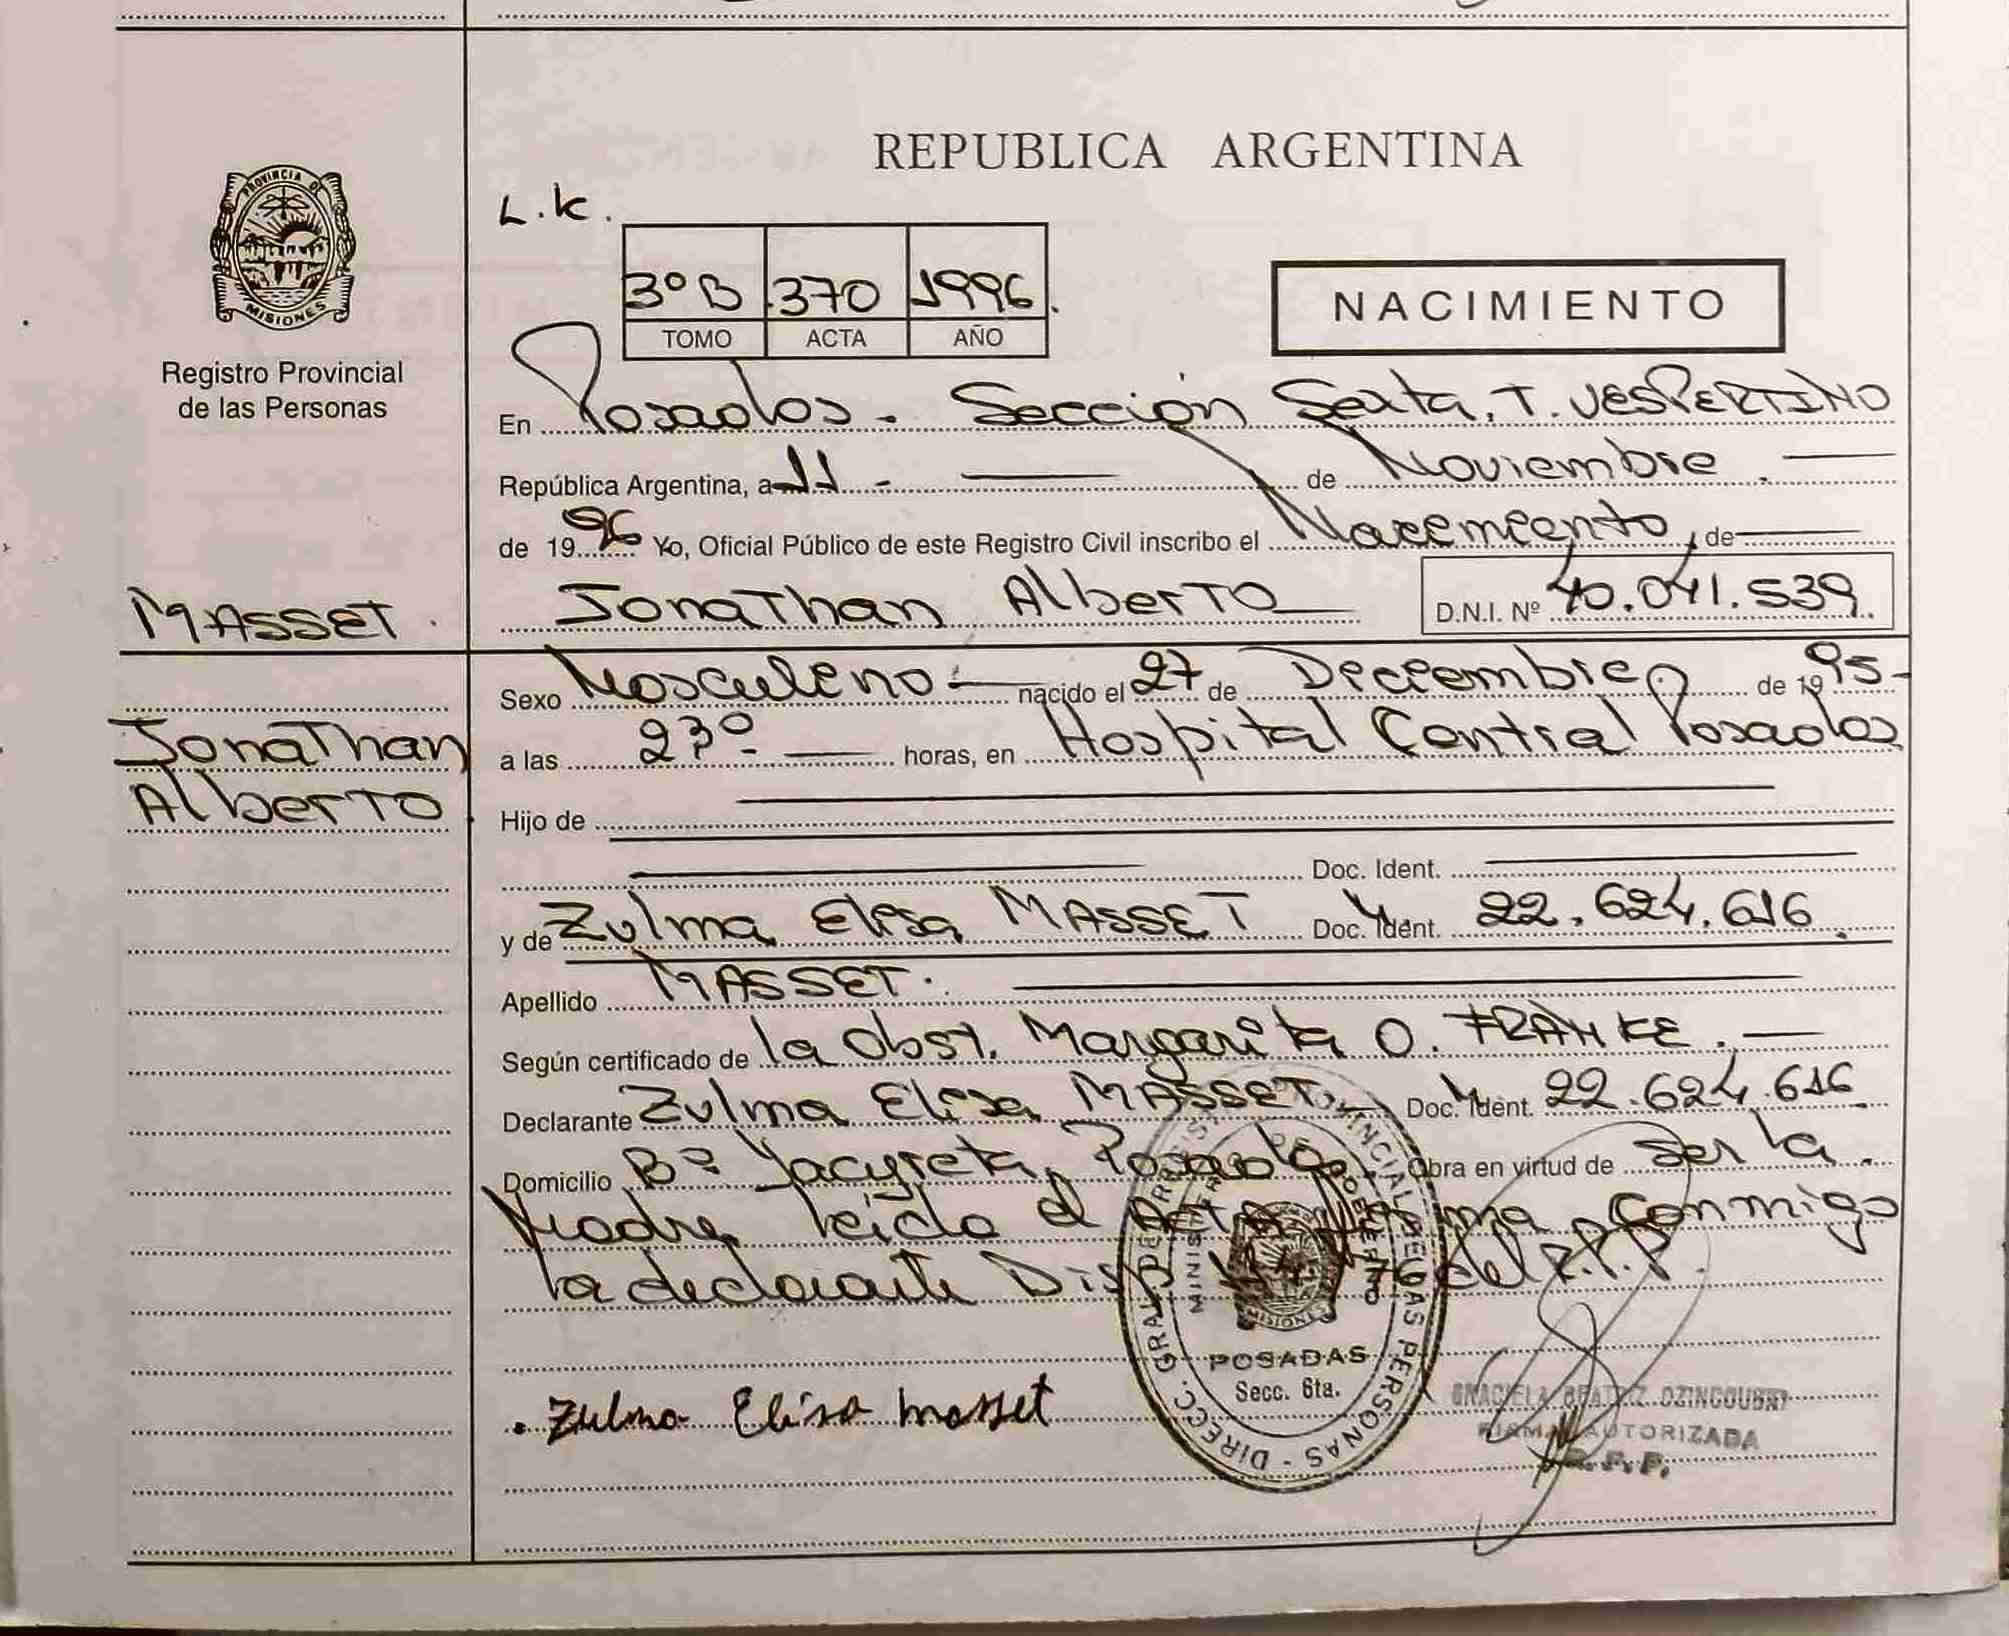 REPUBLICA ARGENTINA
PROVINCIA DE
MISIONES
Registro Provincial
de las Personas
L.K.
3º B 370 1996.
TOMO ACTA AÑO
NACIMIENTO
En Posadas. Sección Sexta. T. VESPERTINO
República Argentina, a 11 - de Noviembre.
de 1996 Yo, Oficial Público de este Registro Civil inscribo el Nacimiento, de
MASSET. Jonathan Alberto D.N.I. Nº 40.041.539
Sexo Masculino nacido el 27 de Diciembre de 1995-
Jonathan
Alberto
a las 23º horas, en Hospital Central Posadas
Hijo de
Doc. Ident.
y de Zulma Elisa MASSET Doc. Ident. 22.624.616
Apellido MASSET.
Según certificado de la Obst. Margarita O. FRANKE.
Declarante Zulma Elisa MASSET. Doc. Ident. 22.624.616
Domicilio Bº Yacyreta, Posadas. Obra en virtud de ser la
Madre, leída el Acta firma conmigo
la declarante Disp. del R.P.P.
DIRECC. GRAL. DE REGISTRO PROVINCIAL DE LAS PERSONAS
MINISTERIO DE GOBIERNO
MISIONES
POSADAS
Secc. 6ta.
Zulma Elisa Masset
GRACIELA BEATRIZ
FIRMA AUTORIZADA
R.P.P.